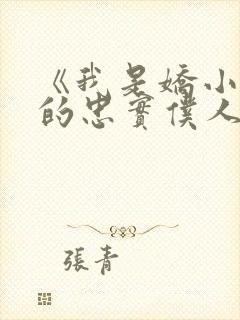 《我是嬌小
的忠實僕人
張青